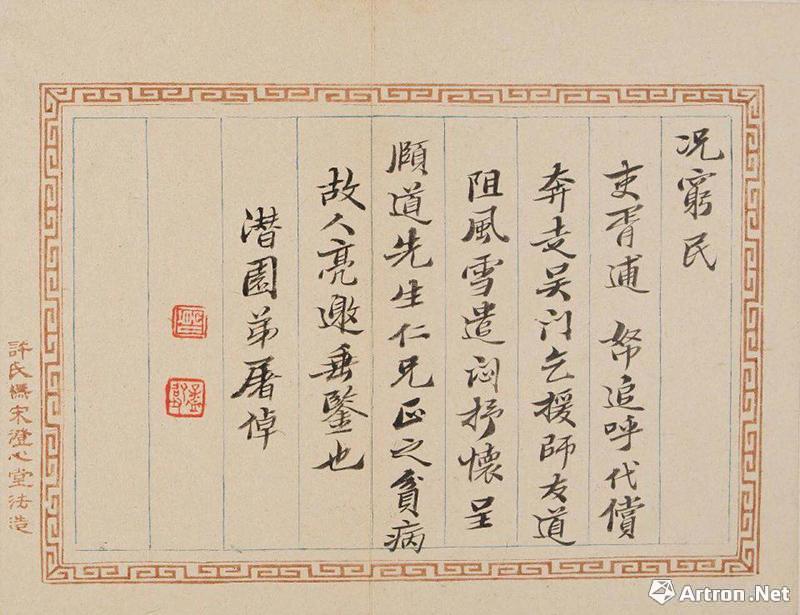 况窮民
吏胥逋帑追呼代償
奔走吴门乞援師友道
阻風雪遣闷抒懷呈
頤道先生仁兄正之貧病
故人亮邀垂鑒也
潜園弟屠倬
許氏橅宋澄心堂法造
Artron.Net